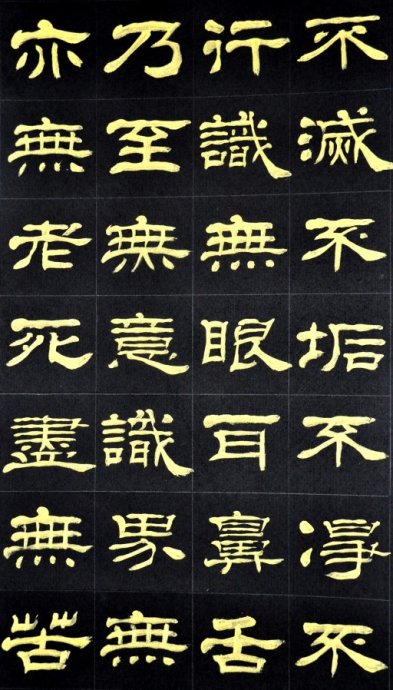 不滅不垢不淨不
行識無眼耳鼻舌
乃至無意識界無
亦無老死盡無苦